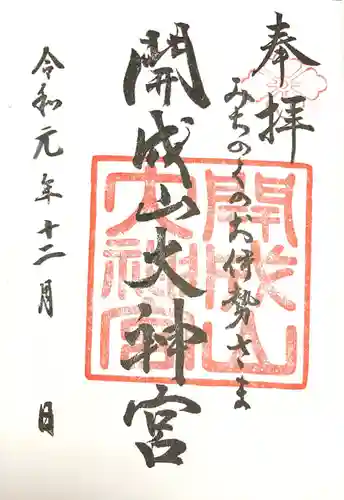 奉拝
みちのくのお伊勢さま
開成山大神宮
令和元年十二月 日
開成山大神宮